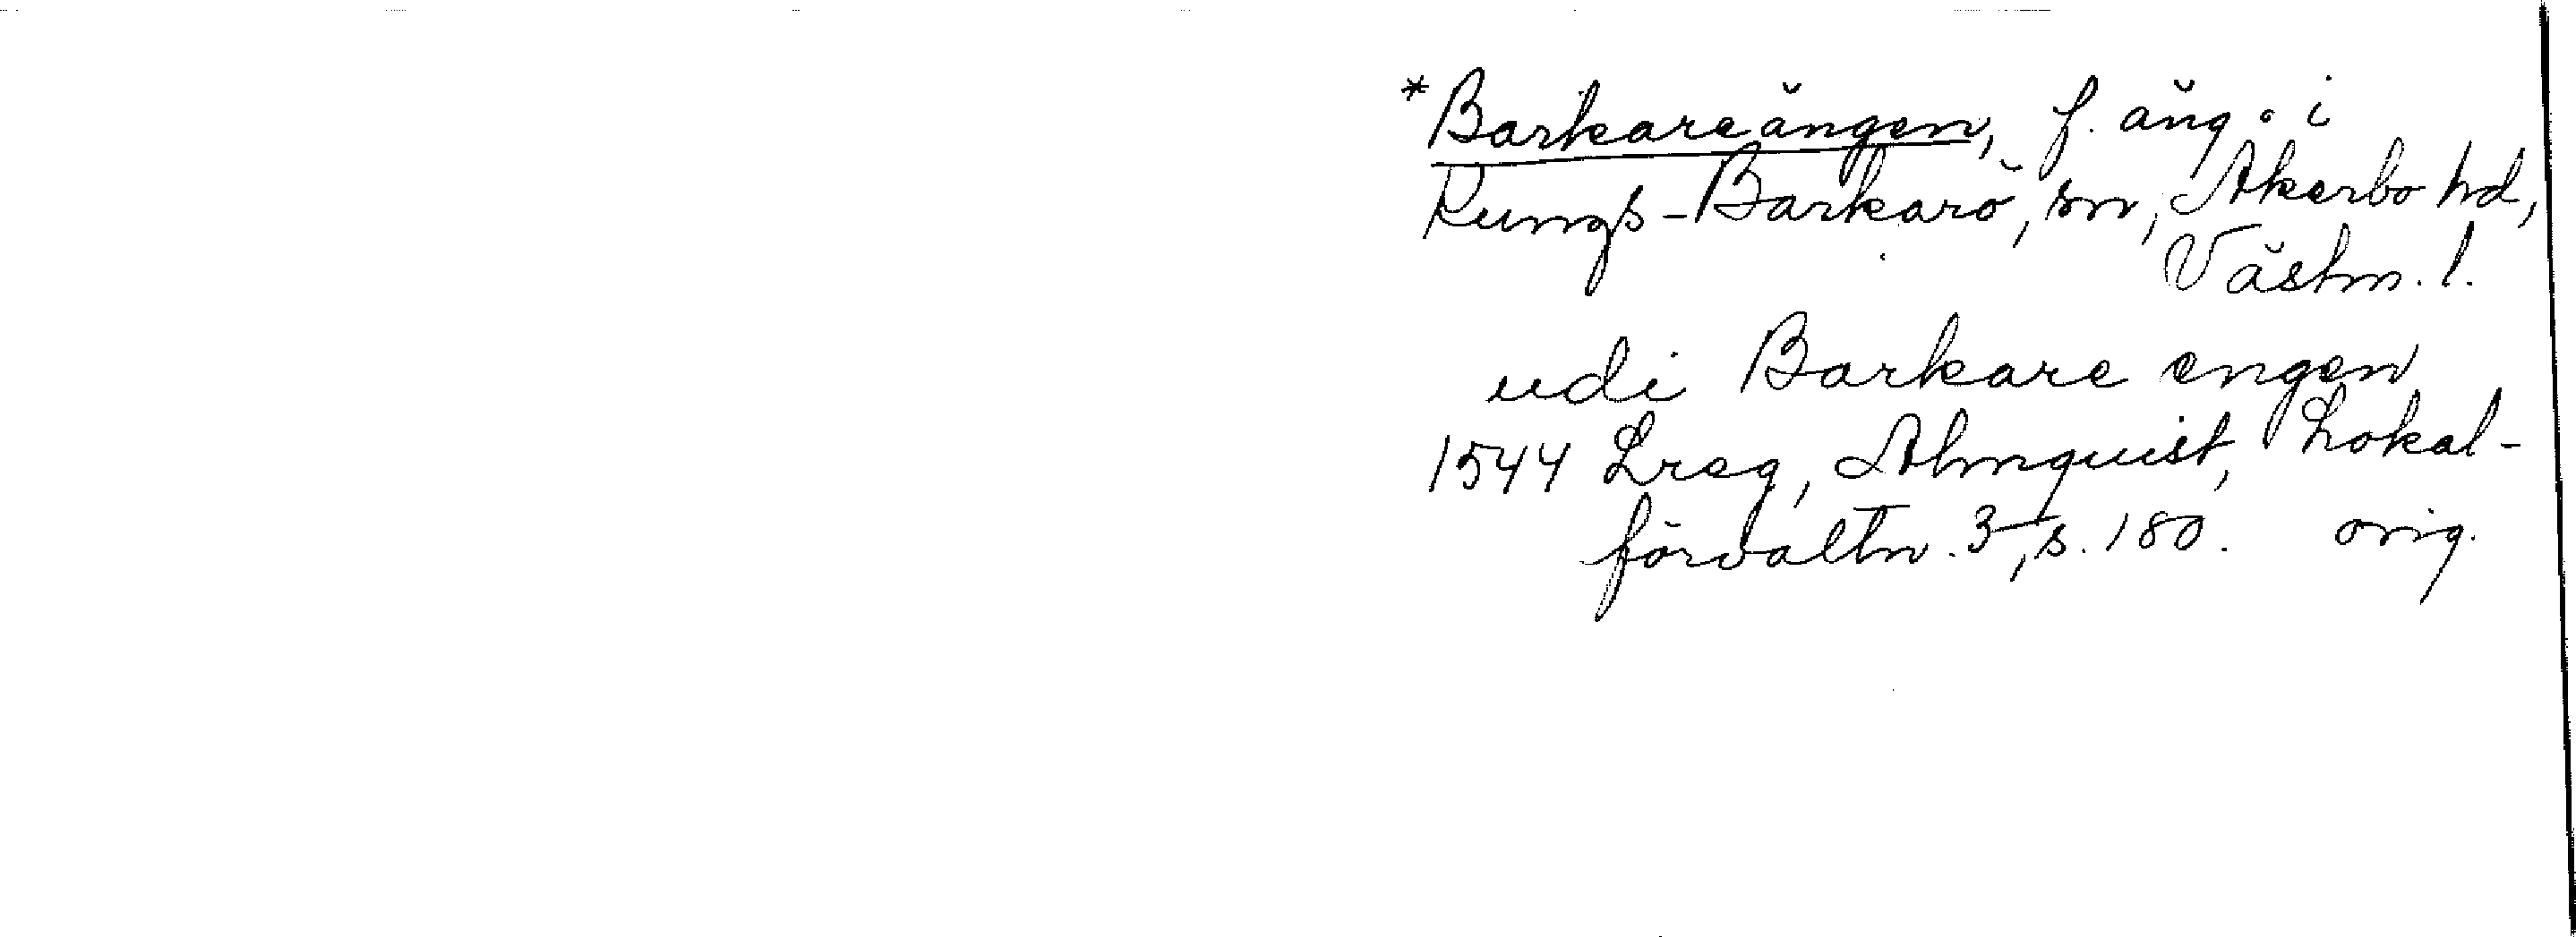 *Barkareängen, f. äng i
Kungs-Barkarö, sn, Åkerbo hd,
Västm. l.
udi Barkare engen
1544 Lräg, Almquist, Lokal-
förvaltn. 3, s. 180. orig.